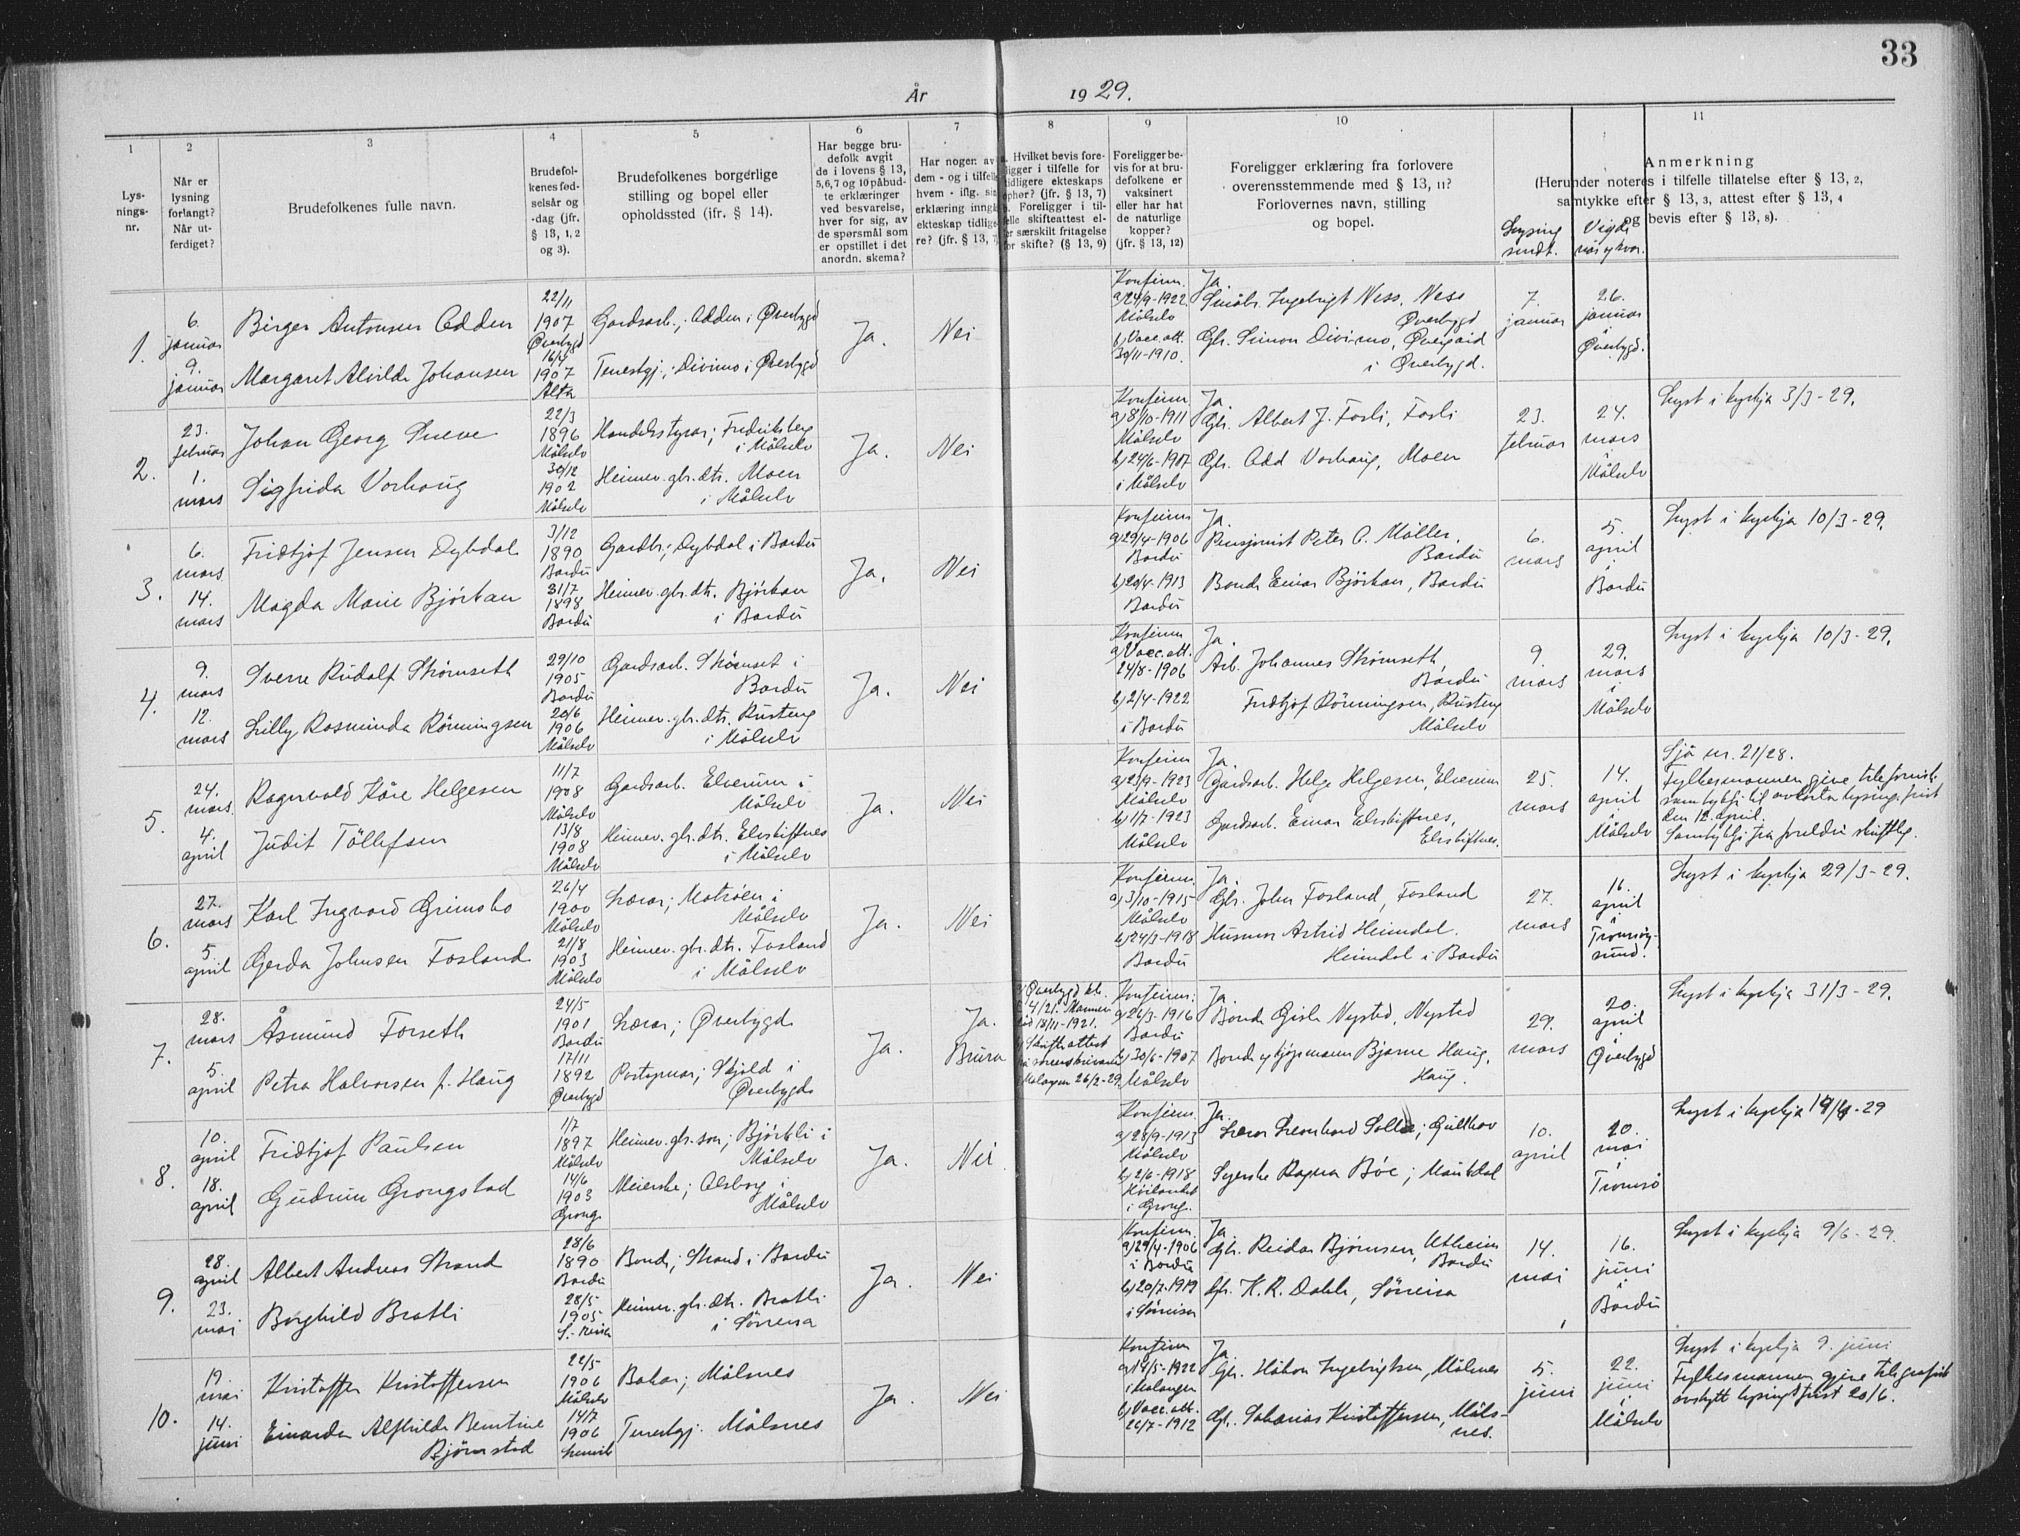 33
År 1929.
1 2 3 4 5 6 7 8 9 10 11
Lys-
nings-
nr.
Når er
lysning
forlangt?
Når ut-
ferdiget?
Brudefolkenes fulle navn.
Brudefol-
kenes fød-
selsår og
-dag (jfr.
§ 13, 1, 2
og 3).
Brudefolkenes borgerlige
stilling og bopel eller
opholdssted (ifr. § 14).
Har begge bru-
defolk avgit
de i lovens § 13,
5, 6, 7 og 10 påbud-
te erklæringer
ved besvarelse,
hver for sig, av
de spørsmål som
er opstillet i det
anordn. skema?
Har nogen av
dem - og i tilfelle
hvem - iflg. sin
erklæring inngå
ekteskap tidlige-
re? (jfr. § 13, 7)
Hvilket bevis fore-
ligger i tilfelle for
tidligere ekteskaps
ophør? (jfr. § 13, 7)
Foreligger i til-
felle skifteattest el-
er særskilt fritagelse
for skifte? (§ 13, 9)
Foreligger be-
vis for at bru-
defolkene er
vaksinert
eller har hat
de naturlige
kopper?
(jfr. § 13, 12)
Foreligger erklæring fra forlovere
overensstemmende med § 13, 11?
Forlovernes navn, stilling
og bopel.
Anmerkning
(Herunder noteres i tilfelle tillatelse efter § 13, 2,
samtykke efter § 13, 3, attest efter § 13, 4
og bevis efter § 13, 8).
Lysing
Vigde
1.
6.
januar
9.
januar
Birger Antonsen Odden
Margaret Alvilde Johansen
22/11
1907
Øverbygd
16/4
1907
Alta
Gardsarb.; Odden i Øverbygd
Tenestgj.; Divimo i Øverbygd
Ja.
Nei
Konfirm.
a) 24/9-1922
Målselv
b) Vacc. att.
30/11-1910.
Ja.
Småbr. Ingebrigt Ness, Ness
Øverbygd
Gbr. Simon Divimo, Øvergård
i Øverbygd.
7.
januar
26.
januar
i
Øverbygd.
2.
23.
februar
1.
mars
Johan Georg Sneve
Sigfrida Vorhaug
22/3
1896
Målselv
30/12
1902
Målselv
Handelsstyrar; Fredriksberg
i Målselv
Heimev. gbr. dtr. Moen
i Målselv
Ja.
Nei
Konfirm
a) 8/10-1911
Målselv
b) 24/6-1907
i Målselv
Ja.
Gbr. Albert J. Fosli, Fosli
Gbr. Odd Vorhaug, Moen
23.
februar
24.
mars
i
Målselv
Lyst i kyrkja 3/3-29.
3.
6.
mars
14.
mars
Fridtjof Jensen Dybdal
Magda Marie Bjørkan
3/12
1890
Bardu
31/7
1898
Bardu
Gardbr; Dybdal i Bardu
Heimev. gbr. dtr. Bjørkan
i Bardu
Ja.
Nei
Konfirm
a) 29/4-1906
Bardu
b) 20/4-1913
Bardu
Ja.
Pensjonist Peter O. Møller.
Bardu
Bonde Einar Bjørkan, Bardu
6.
mars
5.
april
i
Bardu
Lyst i kyrkja 10/3-29.
4.
9.
mars
12.
mars
Sverre Rudolf Strømseth
Lilly Rosmunda Rønningsen
29/10
1905
Bardu
20/6
1906
Målselv
Gardsarb. Strømset i
Bardu
Heimev. gbr. dtr. Rusteng
i Målselv
Ja.
Nei
Konfirm
a) Vacc. att.
24/8-1906
b) 2/4-1922
i Bardu
Ja.
Arb. Johannes Strømseth,
Bardu
Fridtjof Rønningsen, Rusteng
Målselv
9.
mars
29.
mars
i
Målselv
Lyst i kyrkja 10/3-29.
5.
24.
mars
4.
april
Ragnvald Kåre Helgesen
Judit Tøllefsen
11/7
1908
Målselv
13/8
1908
Målselv
Gardsarb. Elverum i
Målselv
Heimev. gbr. dtr. Elvskiftnes
i Målselv
Ja.
Nei
Konfirm.
a) 23/9-1923
Målselv
b) 1/7-1923
Målselv
Ja.
Gardsarb. Helge Helgesen, Elverum
Gardsarb. Einar Elvskiftnes,
Elvskiftnes.
25.
mars
14.
april
i
Målselv
Sjå nr. 21/28.
Fylkesmannen gjeve telefonisk
samtykkji til avkorta lysings frist
den 12. april.
Samtykkji fra foreldre skriftleg.
6.
27.
mars
5.
april
Karl Ingvard Grimsbo
Gerda Johnsen Fosland
26/4
1900
Målselv
21/8
1903
Målselv
Lærar; Matsøen i
Målselv
Heimev. gbr. dtr. Fosland
i Målselv
Ja.
Nei
Konfirm.
a) 3/10-1915
Målselv
b) 24/3-1918
Bardu
Ja.
Gbr. John Fosland, Fosland
Husmor Astrid Heimdal.
Heimdal i Bardu
27.
mars
16.
april
i
Tromsøy-
sund.
Lyst i kyrkja 29/3-29.
7.
28.
mars
5.
april
Åsmund Forseth
Petra Halvorsen f. Haug
24/5
1901
Bardu
17/11
1892
Øverbygd
Lærar; Øverbygd
Postopnar; Skjold i
Øverbygd
Ja.
Ja.
Brura
Øverbygd kb.
4/21. Mannen
død 18/11-1921.
Skifteattest
Malangen 26/2-29.
Konfirm:
a) 26/3-1916
Bardu
b) 30/6-1907
Målselv
Ja.
Bonde Gisle Nysted, Nysted
Bonde og kjøpmann Bjarne Haug,
Haug.
29.
mars
20.
april
i
Øverbygd
Lyst i kyrkja 31/3-29.
8.
10.
april
18.
april
Fridtjof Paulsen
Gudrun Grongstad
1/7
1897
Målselv
14/6
1903
Grong
Heimev. gbr. son; Bjørkli i
Målselv
Meierske; Olsborg i
Målselv
Ja.
Nei.
Konfirm.
a) 28/9-1913
Målselv
b) 2/6-1918
i Grong.
Ja.
Lærar Leonhard Sollie; Gullhav
Syerske Ragna Bøe; Maukdal
10.
april
20.
mai
i
Tromsø
Lyst i kyrkja 14/4-29
9.
28.
april
23.
mai
Albert Andreas Strand
Borghild Bratli
28/6
1890
Bardu
28/5
1905
S.-reisa
Bonde; Strand i Bardu
Heimev. gbr. dtr. Bratli
i Sørreisa
Ja.
Nei
Konfirm.
a) 29/4-1906
i Bardu
b) 20/7-1919
i Sørreisa
Ja.
Gbr. Reidar Bjørnsen, Utheim
Bardu
Gbr. K. R. Dahle, Sørreisa
14.
mai
16.
juni
i
Bardu
Lyst i kyrkja 9/6-29.
10.
19.
mai
14.
juni
Kristoffer Kristoffersen
Einarda Alfhilda Berntine
Bjørnstad
22/5
1906
Målselv
14/7
1906
Lenvik
Bakar; Målsnes
Tenestgj. Målsnes
Ja.
Nei
Konfirm
a) 14/5-1922
i Malangen
b) Vacc. att.
26/7-1912
Ja.
Gbr. Håkon Ingebrigtsen, Målsnes
Gbr. Sakarias Kristoffersen, Måls-
nes.
5.
juni
22.
juni
i
Målselv
Lyst i kyrkja 9. juni
Fylkesmannen gjeve telegrafisk
avstytt lysingsfrist 20/6.